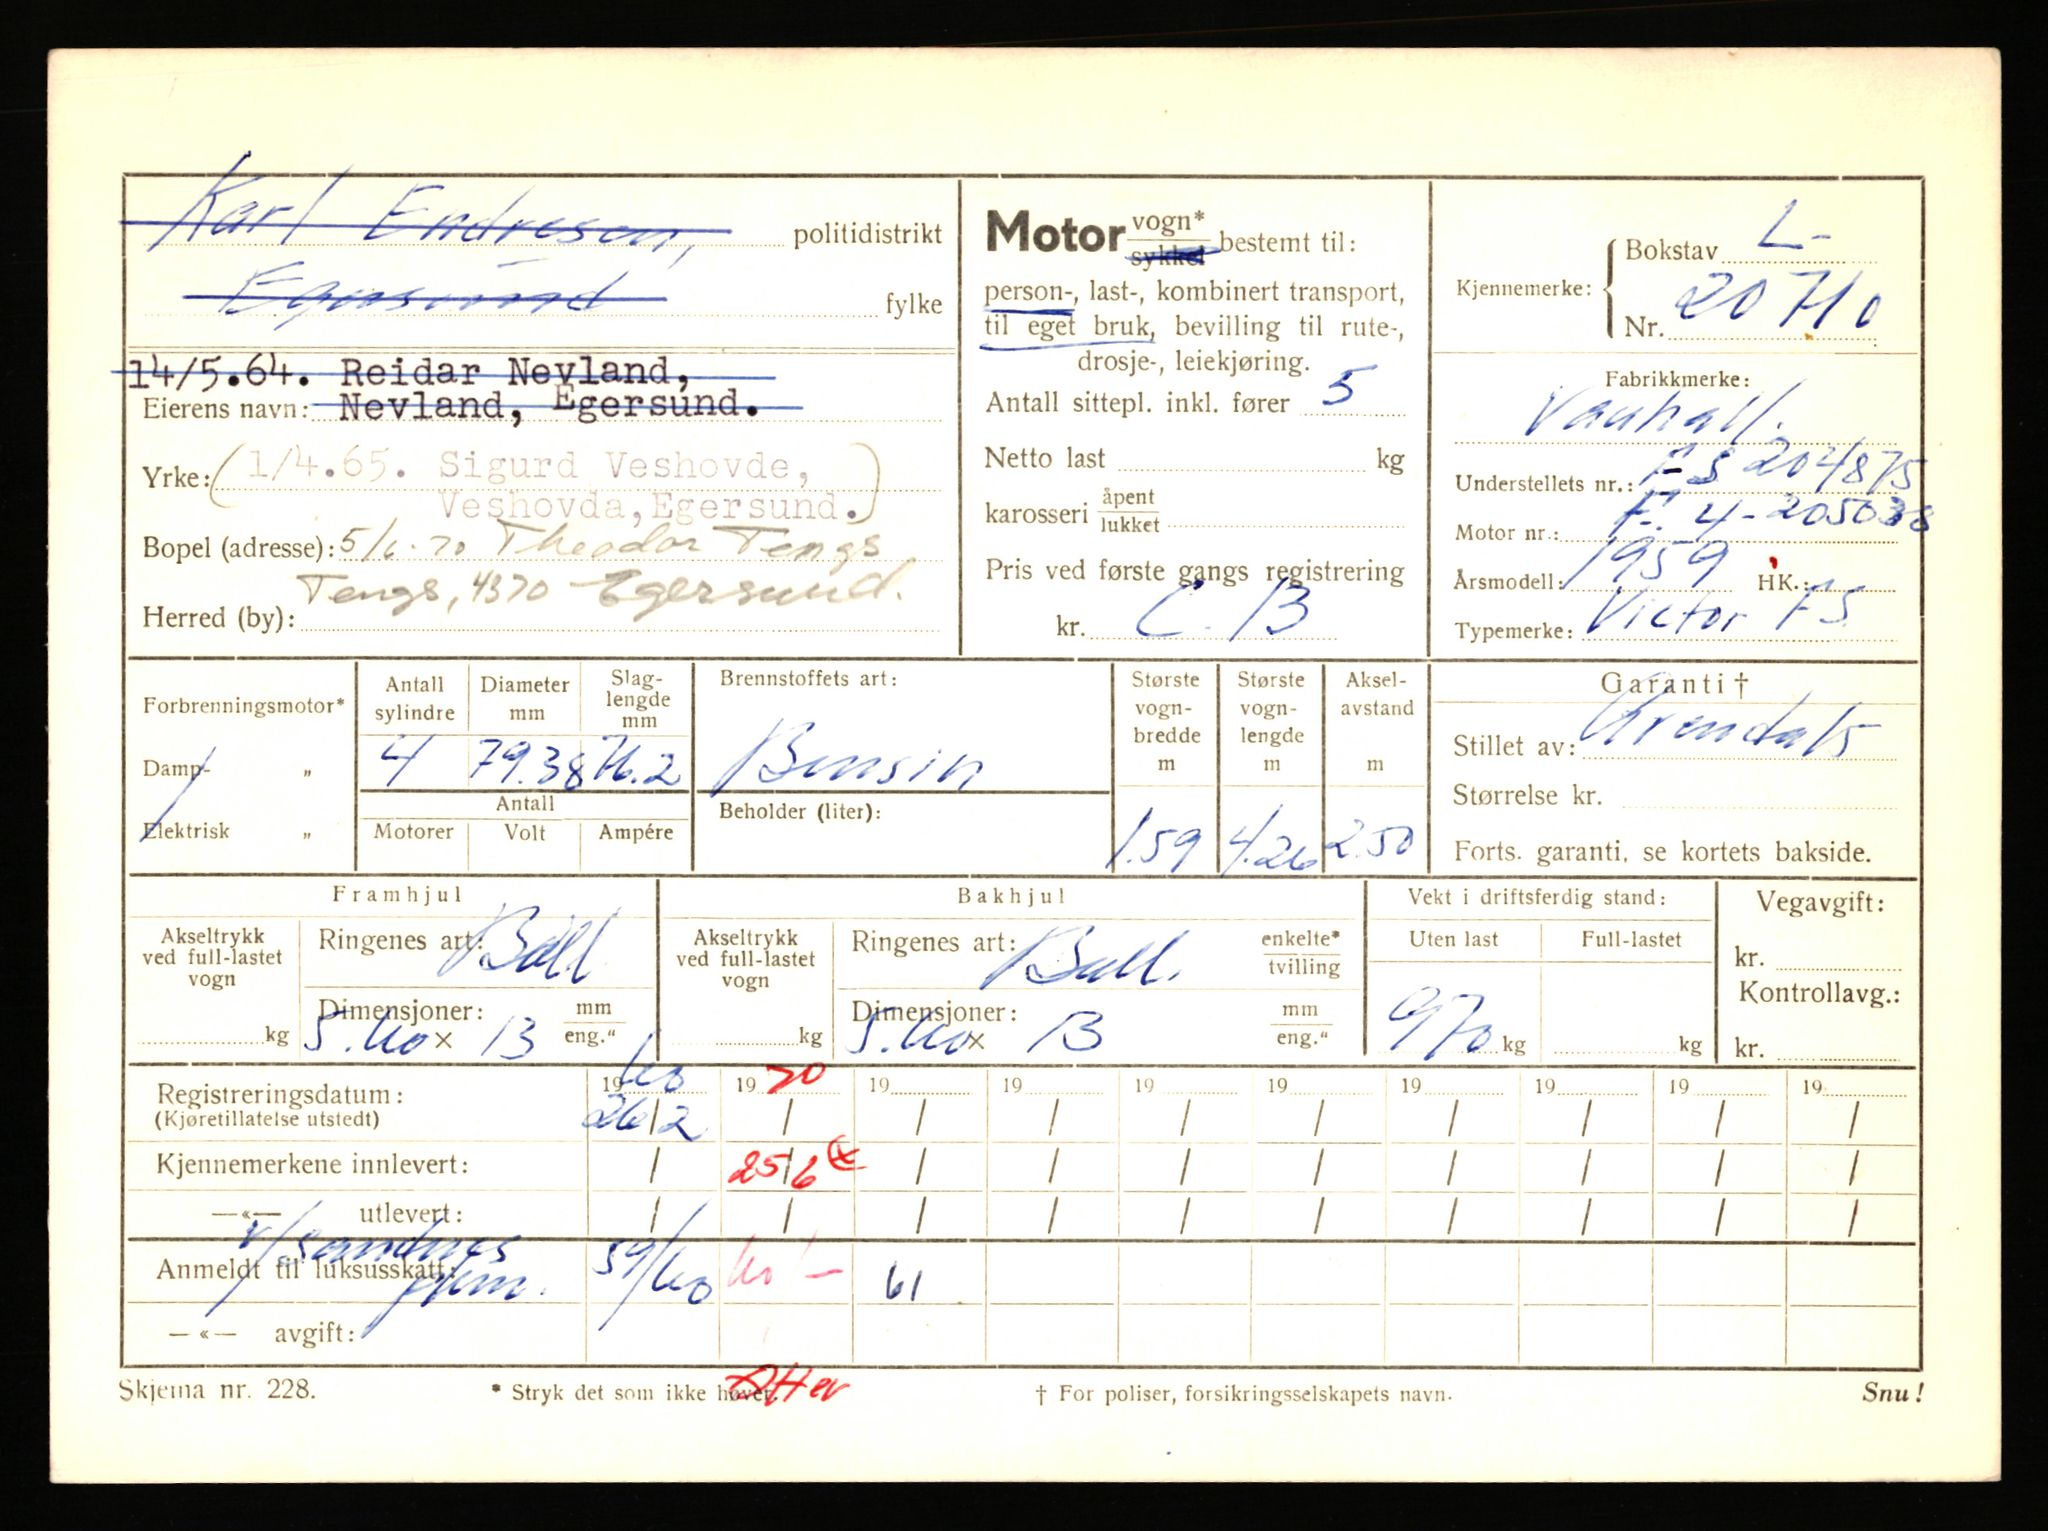 Karl Endresen, politidistrikt
Egersund fylke
14/5.64. Reidar Nevland,
Eierens navn: Nevland, Egersund.
Yrke: (1/4.65. Sigurd Veshovde,
Veshovda, Egersund.)
Bopel (adresse): 5/6-70 Theodor Tengs
Tengs, 4370 Egersund.
Herred (by):
Motor vogn*
sykkel bestemt til:
person-, last-, kombinert transport,
til eget bruk, bevilling til rute-,
drosje-, leiekjøring.
Antall sittepl. inkl. fører 5
Netto last kg
karosseri åpent
lukket
Pris ved første gangs registrering
kr. C. B
Kjennemerke: Bokstav L-
Nr. 20710
Fabrikkmerke:
Vauhall.
Understellets nr.: FS 204875
Motor nr.: F. 4-205038
Årsmodell: 1959 HK.:
Typemerke: Victor FS
Forbrenningsmotor*
Damp- „
Elektrisk „
Antall sylindre
4
Diameter mm
79.38
Slag-lengde mm
76.2
Antall
Motorer Volt Ampére
Brennstoffets art:
Bensin
Beholder (liter):
Største vogn-bredde m
1.59
Største vogn-lengde m
4.26
Aksel-avstand m
2.50
Garanti †
Stillet av: Arendals
Størrelse kr.
Forts. garanti, se kortets bakside.
Framhjul
Akseltrykk ved full-lastet vogn
kg
Ringenes art: Ball
Dimensjoner: mm
5.60 x 13 eng.“
Bakhjul
Akseltrykk ved full-lastet vogn
kg
Ringenes art: Ball. enkelte*
tvilling
Dimensjoner: mm
5.60 x 13 eng.“
Vekt i driftsferdig stand:
Uten last Full-lastet
970 kg kg
Vegavgift:
kr.
Kontrollavg.:
kr.
Registreringsdatum: 1960 1970 19 19 19 19 19 19 19 19
(Kjøretillatelse utstedt) 26/2 / / / / / / / / /
Kjennemerkene innlevert: / 25/6 / / / / / / / /
—«— utlevert: / / / / / / / / / /
v/ Sandnes
Anmeldt til luksusskatt: 59/60 60 - 61
—«— avgift:
Skjema nr. 228.
* Stryk det som ikke høver.
† For poliser, forsikringsselskapets navn.
Snu!